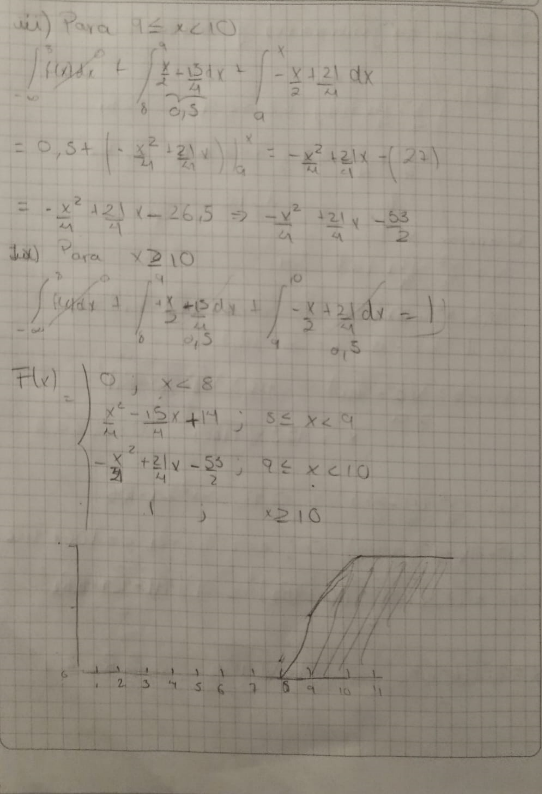 iii) Para 9 ≤ x < 10
∫_{-∞}^{8} f(x)dx 0 + ∫_{8}^{9} x/2 - 15/4 dx + ∫_{9}^{x} -x/2 + 21/4 dx
0,5
= 0,5 + (-x²/4 + 21/4 x) |_{9}^{x} = -x²/4 + 21/4 x - (27)
= -x²/4 + 21/4 x - 26,5 ⇒ -x²/4 + 21/4 x - 53/2
Para x ≥ 10
∫_{-∞}^{8} f(x)dx 0 + ∫_{8}^{9} +x/2 - 15/4 dx + ∫_{9}^{10} -x/2 + 21/4 dx = 1
0,5 0,5
F(x) = { 0 ; x < 8
x²/4 - 15/4 x + 14 ; 8 ≤ x < 9
-x²/4 + 21/4 x - 53/2 ; 9 ≤ x < 10
1 ; x ≥ 10
0 1 2 3 4 5 6 7 8 9 10 11